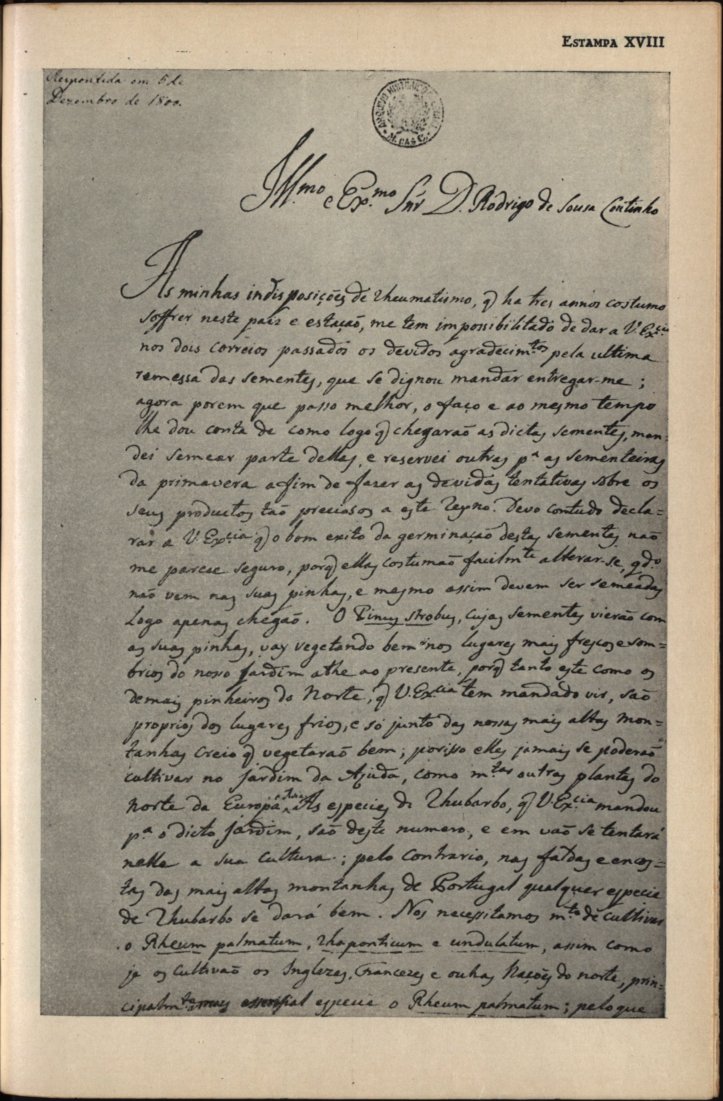 ESTAMPA XVIII
Respondida em 5 de
Dezembro de 1800.
Ill.mo e Ex.mo Snr D. Rodrigo de Sousa Coutinho
As minhas indisposições de rheumatismo, q̃ ha tres annos costumo
soffrer neste paiz e estação, me tem impossibilitado de dar a V. Ex.cia
nos dois correios passados os devidos agradecim.tos pela ultima
remessa das sementes, que se dignou mandar entregar-me;
agora porem que passo melhor, o faço e ao mesmo tempo
lhe dou conta de como logo q̃ chegarão as dictas sementes, man-
dei semear parte dellas, e reservei outras p.a as sementeiras
da primavera a fim de fazer as devidas tentativas sobre os
seus productos tão preciosos a este Reyno. Devo comtudo decla-
rar a V. Ex.cia q̃ o bom exito da germinação destas sementes não
me parece seguro, porq̃ ellas costumão facilm.te alterar-se, qd.o
não vem nas suas pinhas, e mesmo assim devem ser semeadas
logo apenas chegão. O Pinus strobus, cujas sementes vierão com
as suas pinhas, vay vegetando bem nos lugares mais frescos e som-
brios do novo Jardim athe ao presente, porq̃ tanto este como os
demais pinheiros do Norte, q̃ V. Ex.cia tem mandado vir, são
proprios dos lugares frios, e só junto das nossas mais altas mon-
tanhas creio q̃ vegetarão bem; porisso elles jamais se poderão
cultivar no jardim da Ajuda, como m.tas outras plantas do
norte da Europa. As especies de Rhubarbo, q̃ V. Ex.cia mandou
p.a o dicto Jardim, são deste numero, e em vão se tentará
nelle a sua cultura; pelo contrario, nas faldas e encos-
tas das mais altas montanhas de Portugal qualquer especie
de Rhubarbo se dará bem. Nos necessitamos m.to de cultivar
o Rheum palmatum, rhaponticum e undulatum, assim como
ja os cultivão os Inglezes, Francezes e outras Nações do norte, prin-
cipalm.te especie o Rheum palmatum; pelo que